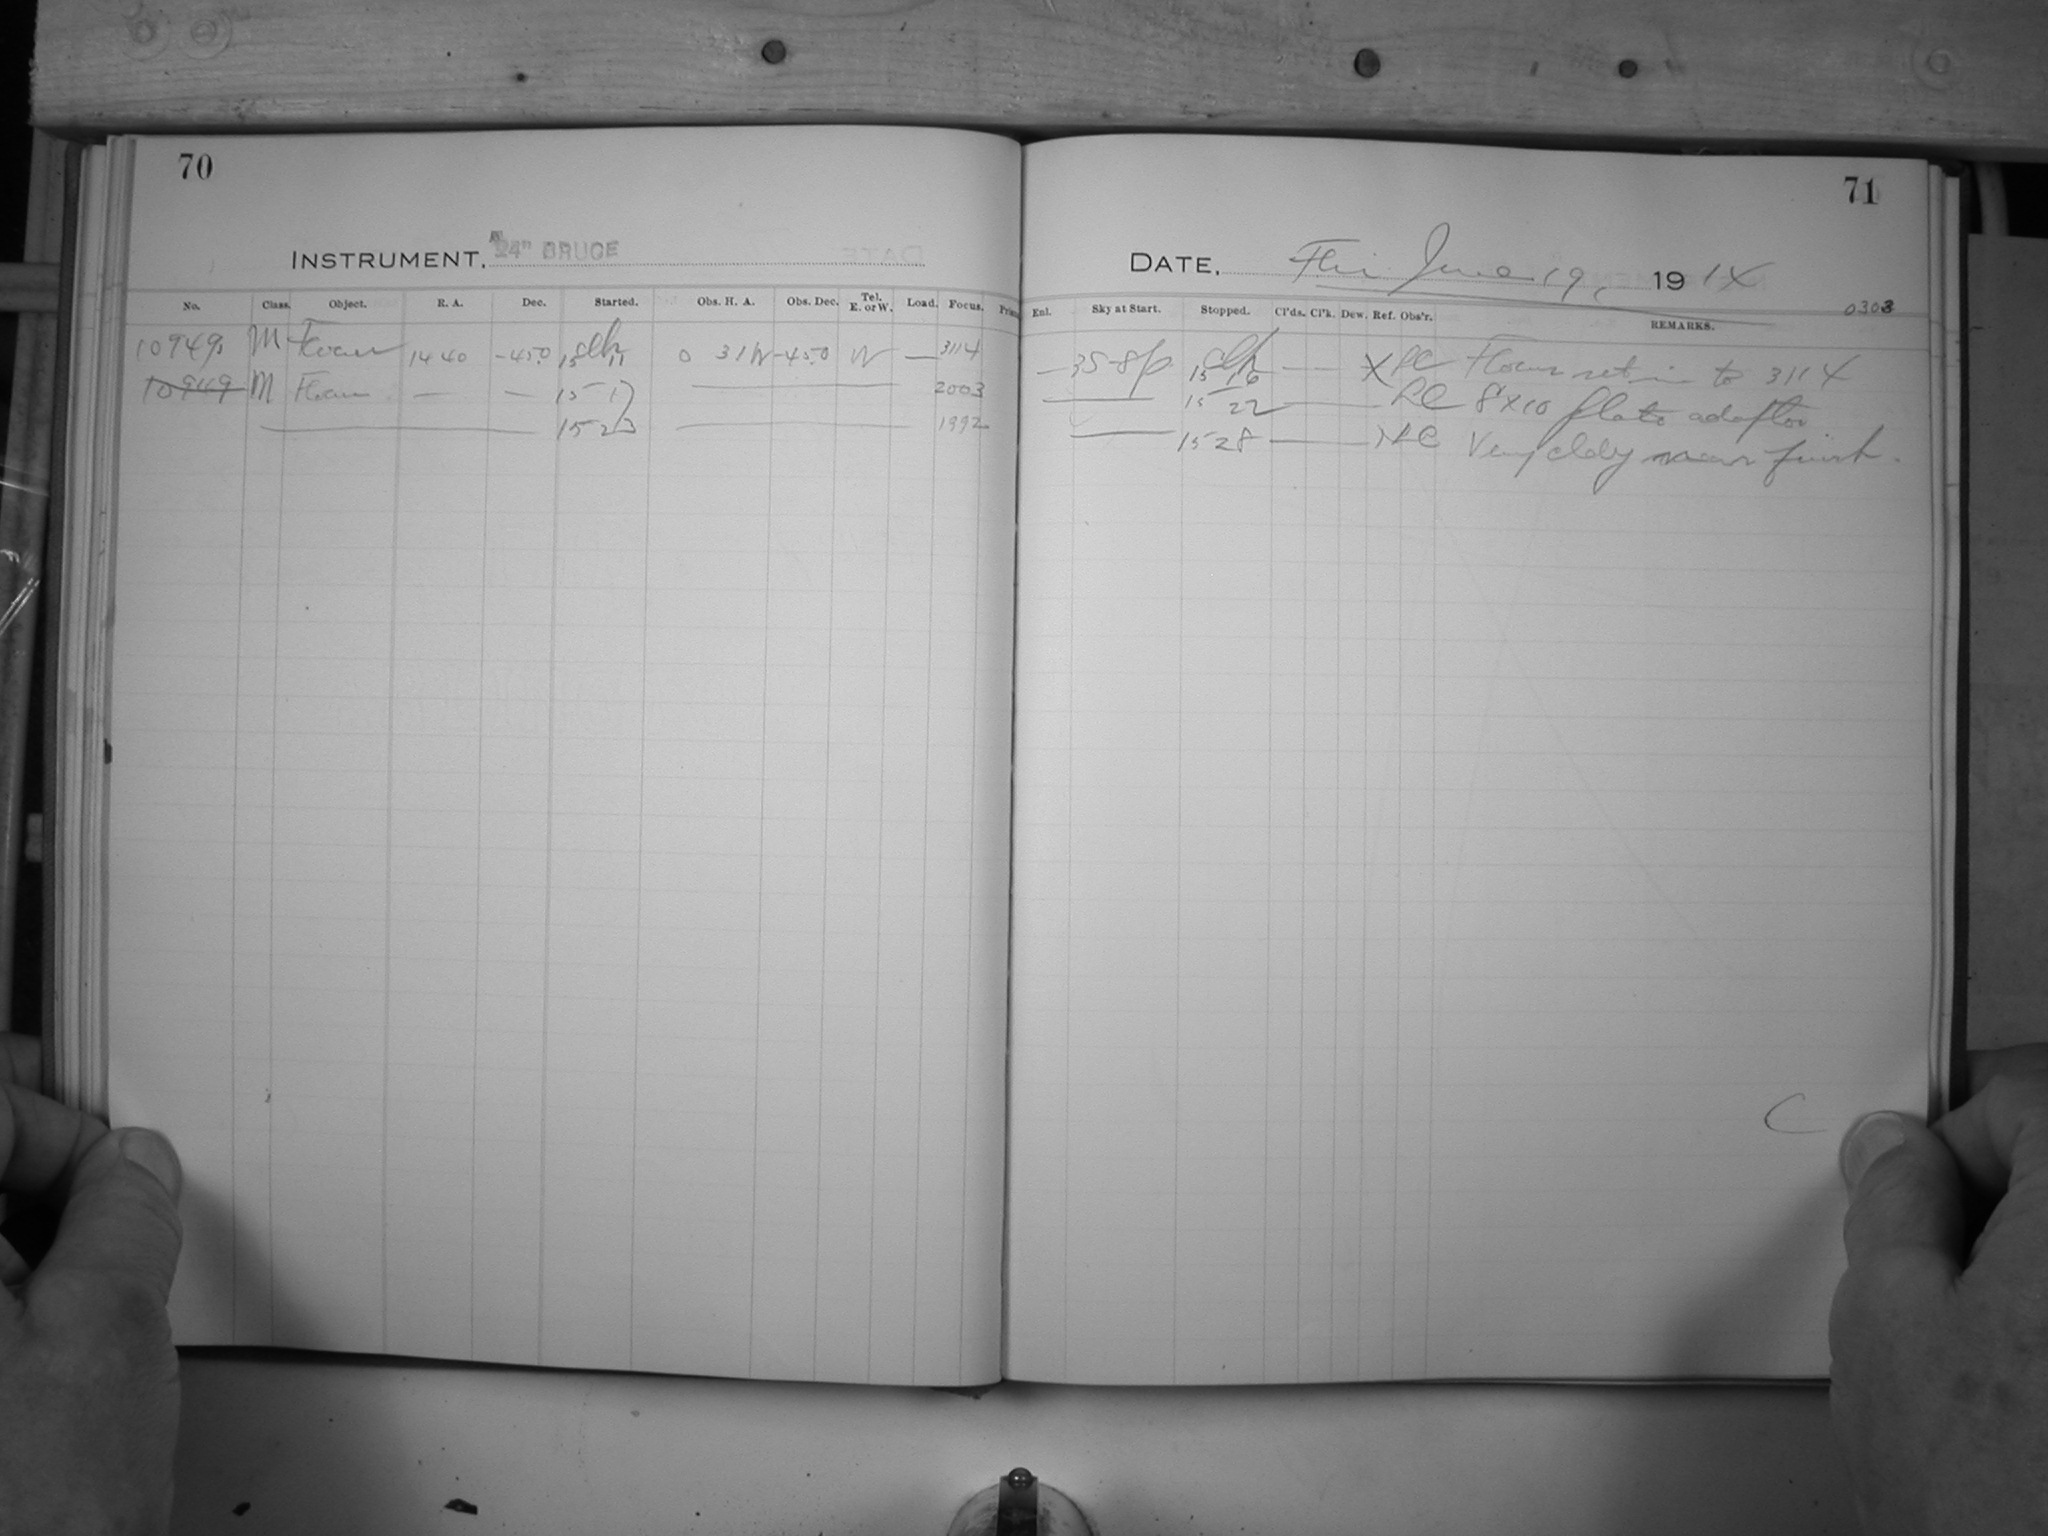 70
INSTRUMENT, A 24" BRUCE
No. Class. Object. R. A. Dec. Started. Obs. H. A. Obs. Dec. Tel. E. or W. Load. Focus.
10949 M Focus 14 40 -45.0 15 11 0 31 W -45.0 W — 3114
10949 M Focus — — 15 17 2003
15 23 1992
71
DATE, Fri June 19, 19 14
0303
Enl. Sky at Start. Stopped. Cl'ds. Cl'k. Dew. Ref. Obs'r. REMARKS.
— 15 16 — — X LC Focus set in to 3114
15 22 LC 8x10 plate adaptor
15 28 LC Very cldy near finish.
C